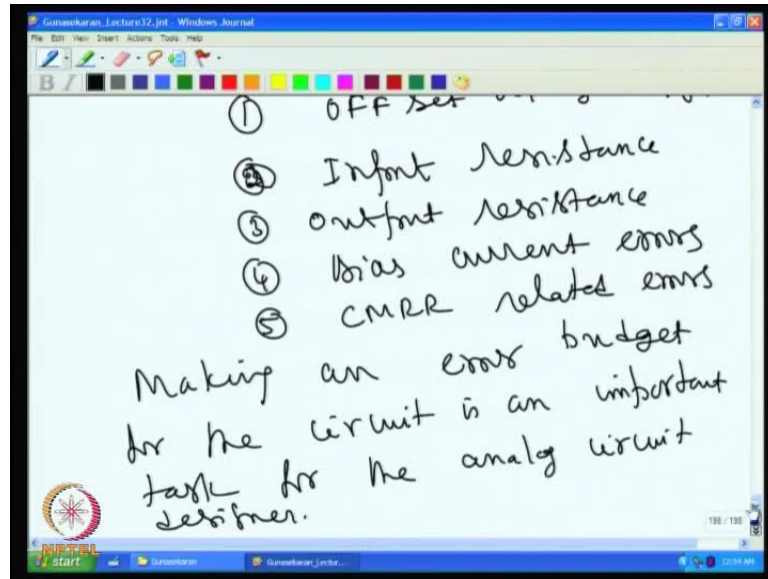 Gunasekaran_Lecture32.jnt - Windows Journal
File Edit View Insert Actions Tools Help
B I
① OFF set
② Input resistance
③ output resistance
④ Bias current errors
⑤ CMRR related errors
Making an error budget
for the circuit is an important
task for the analog circuit
designer.
NPTEL
198 / 198
start Gunasekaran Gunasekaran_Lectur... 12:54 AM